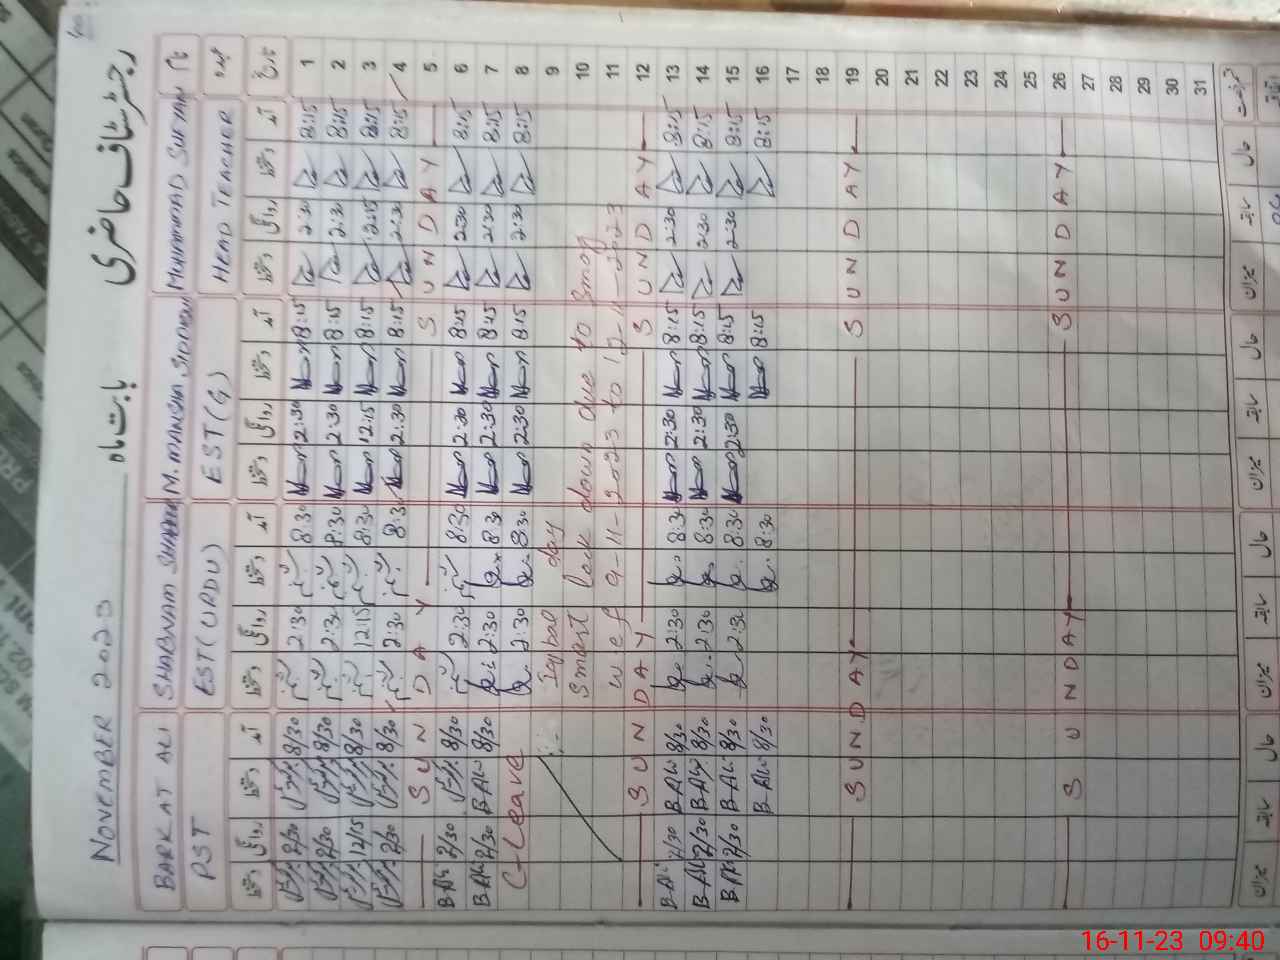 رجسٹر سٹاف حاضری بابت ماہ NOVEMBER 2023
نام MUHAMMAD SUFYAN M. MANSHA SIDDIQUI SHABNAM BARKAT ALI
عہدہ HEAD TEACHER EST(G) EST(URDU) PST
تاریخ آمد دستخط روانگی دستخط آمد دستخط روانگی دستخط آمد دستخط روانگی دستخط آمد دستخط روانگی دستخط
1 8:15 2:30 8:15 2:30 8:30 2:30 8/30 2/30
2 8:15 2:30 8:15 2:30 8:30 2:30 8/30 2/30
3 8:15 8:15 12:15 8:30 12:15 8/30 12/15
4 8:15 2:30 8:15 2:30 8:30 2:30 8/30 2/30
5 SUNDAY SUNDAY
6 8:15 2:30 8:15 2:30 8:30 2:30 8/30 2/30 B.Ali
7 8:15 2:30 8:15 2:30 8:30 2:30 8/30 B.Ali 2/30 B.Ali
8 8:15 2:30 8:15 2:30 8:30 2:30 C-Leave
9 Iqbal day
10 Smart lock down due to Smog
11 w e f 9-11-2023 to 12-11-2023
12 SUNDAY SUNDAY
13 8:15 2:30 8:15 2:30 8:30 2:30 8/30 B.Ali 2/30 B.Ali
14 8:15 2:30 8:15 2:30 8:30 2:30 8/30 B.Ali 2/30 B.Ali
15 8:15 2:30 8:15 2:30 8:30 2:30 8/30 B.Ali 2/30 B.Ali
16 8:15 8:15 8:30 8/30 B.Ali
17
18
19 SUNDAY SUNDAY
20
21
22
23
24
25
26 SUNDAY SUNDAY
27
28
29
30
31
حال سابقہ میزان حال سابقہ میزان حال سابقہ میزان حال سابقہ میزان
16-11-23 09:40